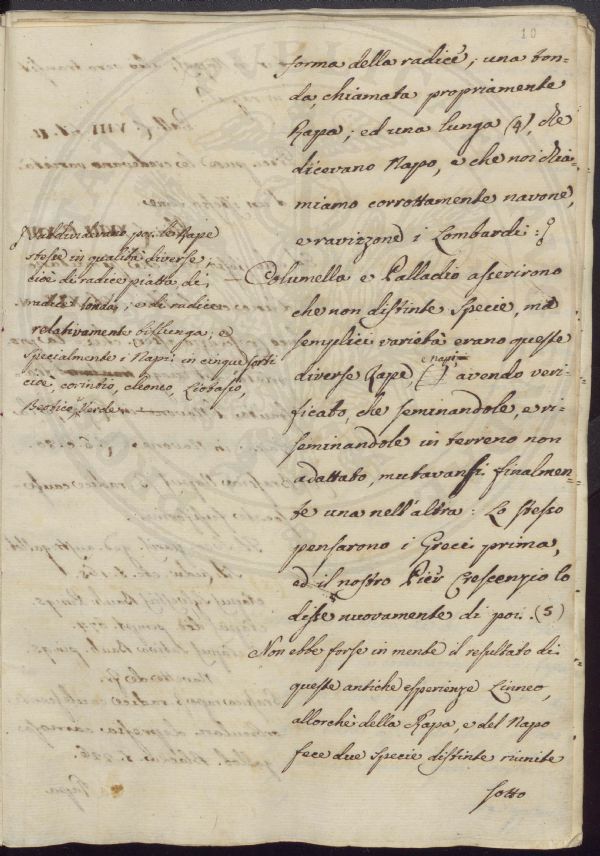 10
forma della radice; una ton=
da, chiamata propriamente
Rapa; ed una lunga (4), che
dicevano Napo, e che noi chia=
miamo corrottamente navone,
e ravizzone i Lombardi:
Columella e Palladio asserirono
che non distinte specie, ma
semplici varietà erano queste
diverse Rape, e napi, avendo veri=
ficato, che seminandole, e ri=
seminandole in terreno non
adattato, mutavansi finalmen=
te una nell'altra: Lo stesso
pensarono i Greci prima,
ed il nostro Pier Crescenzio lo
disse nuovamente di poi. (5)
Non ebbe forse in mente il resultato di
queste antiche esperienze Linneo,
allorchè della Rapa, e del Napo
fece due specie distinte riunite
sotto
Suddividevano poi le Rape
stesse in qualità diverse,
cioè di radice piatta, di
radice tonda, e di radice
relativamente bislunga; e
specialmente i Napi in cinque sorti
cioè, corintio, cleoneo, Liotasio,
Beotico, Verde